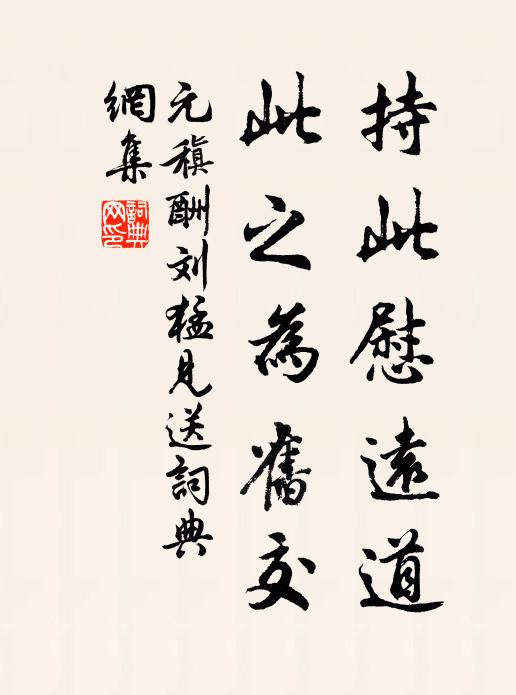 持此慰遠道
此之為舊交
元稹酬刘猛見送詞典
網集
詞典網印